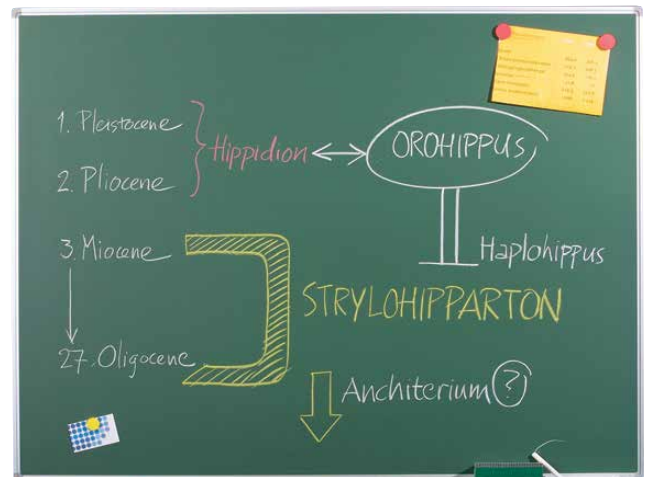 1. Pleistocene
2. Pliocene
Hippidion
OROHIPPUS
Haplohippus
3. Miocene
27. Oligocene
STRYLOHIPPARTON
Anchiterium ?